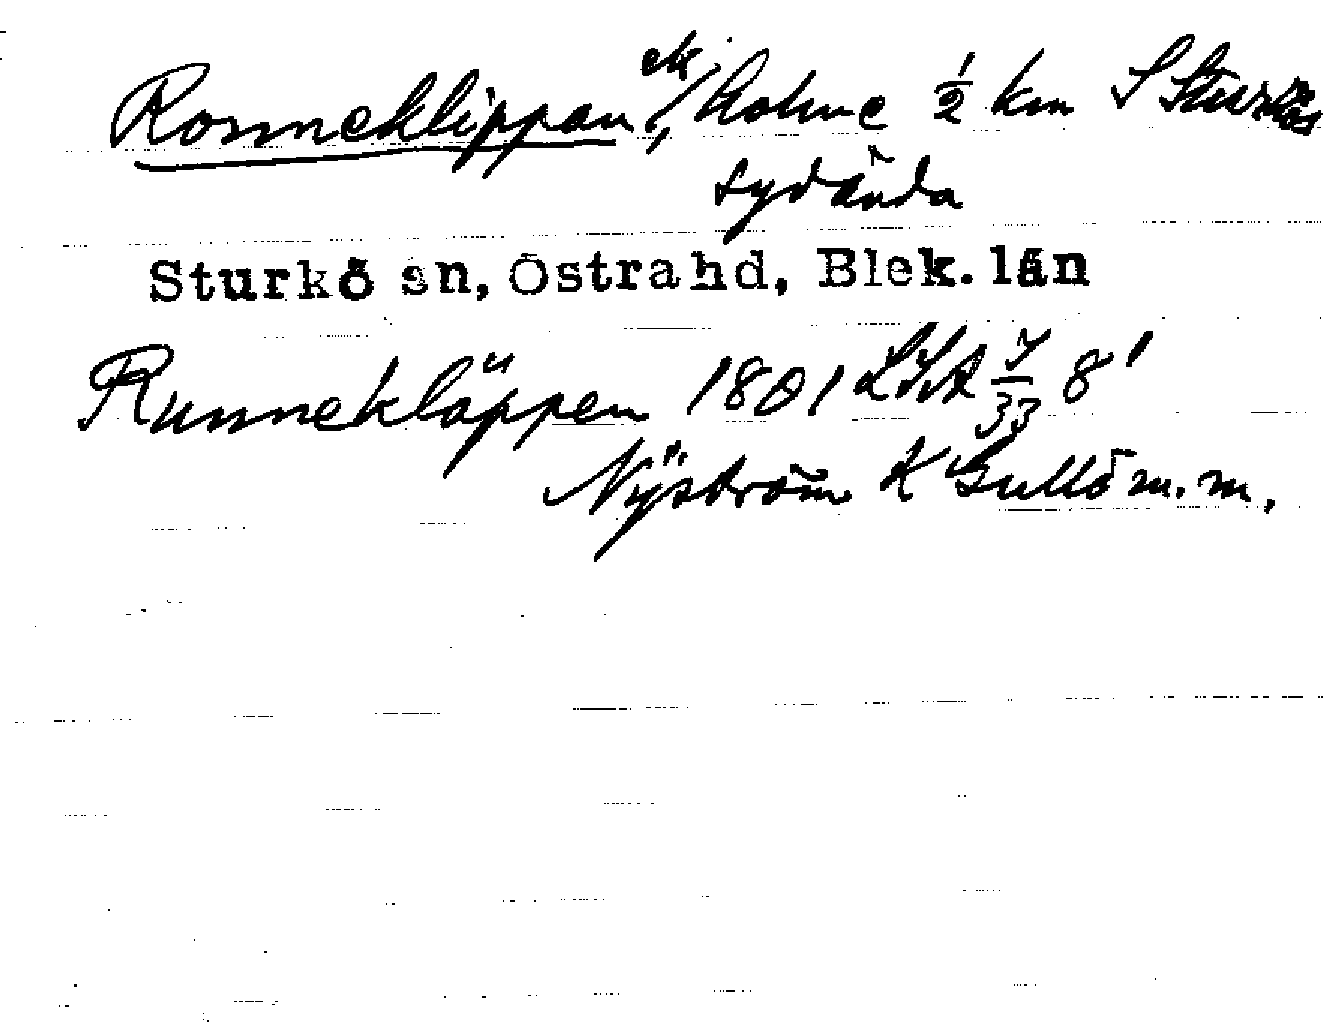 Ronneklippan, ek, holme 1/2 km S Sturkös
sydända
Sturkö sn, Östrahd, Blek. län
Runnekläppen 1801 LSA 7/33 8'
Nyström K Gullö m.m.